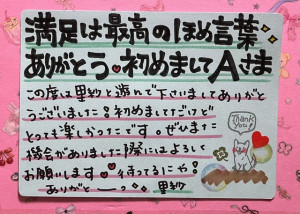 満足は最高のほめ言葉
ありがとう♥初めましてAさま
この度は里紗と遊んで下さいましてありがと
うございました！初めましてだけど
とっても楽しかったです。ぜひまた
機会がありました際にはよろしく
お願いします♥♥待ってるにゃ！
ありがとーっ 里紗
Thank
You!